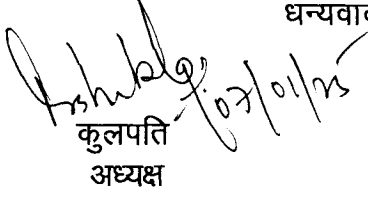 धन्यवाद
07/01/25
कुलपति
अध्यक्ष